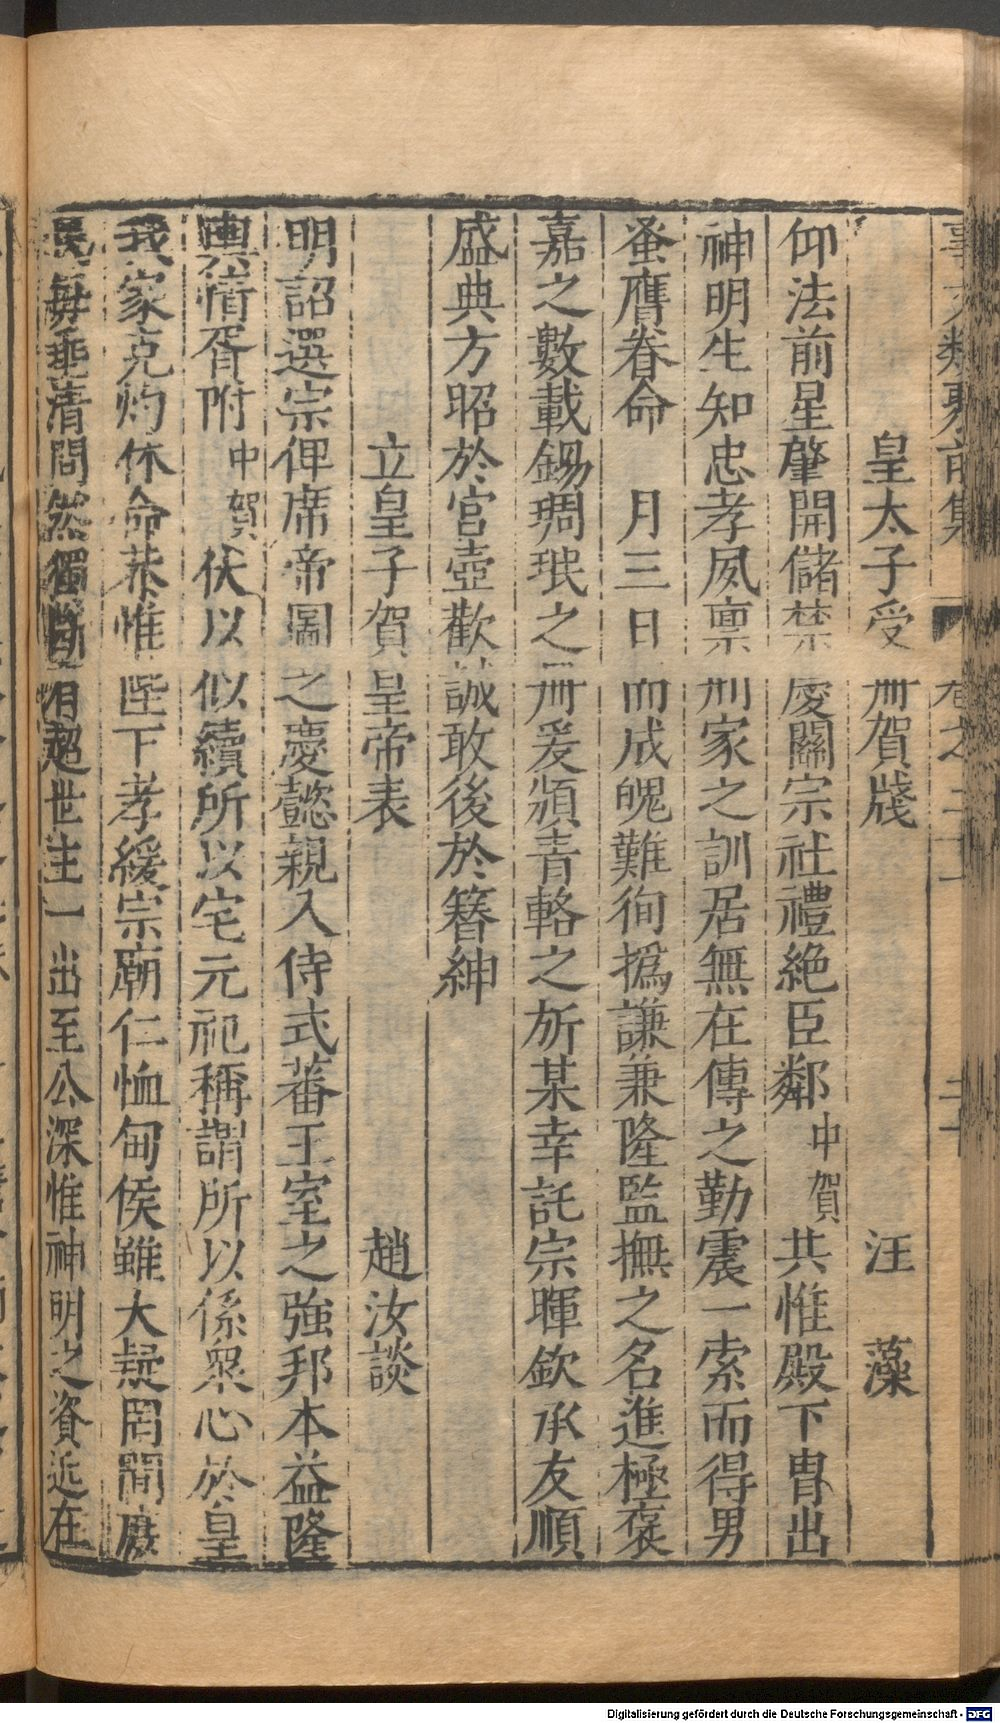 事文類聚前集 卷之二十一
皇太子受冊賀牋 汪藻
仰法前星肇開儲禁慶關宗社禮絶臣鄰中賀共惟殿下胄出
神明生知忠孝夙禀刑家之訓居無在傳之勤震一索而得男
蚤膺眷命 月三日而成魄難徇撝謙兼隆監撫之名進極褒
嘉之數載錫琱珉之冊爰頒青輅之斾某幸託宗暉欽承友順
盛典方昭於宮壼歡誠敢後於簪紳
立皇子賀皇帝表 趙汝談
明詔選宗俾席帝圖之慶懿親入侍式蕃王室之強邦本益隆
輿情胥附中賀伏以似續所以宅元祀稱謂所以係衆心於皇
我家克灼休命恭惟陛下孝緩宗廟仁恤甸侯雖大疑罔間
民每垂清問然獨斷有超世主一出至公深惟神明之資近在
Digitalisierung gefördert durch die Deutsche Forschungsgemeinschaft - DFG